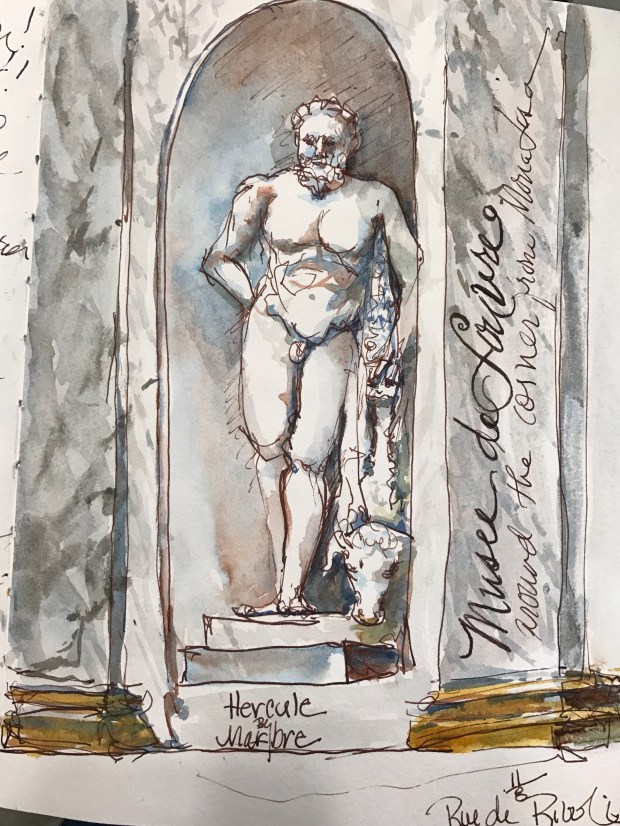 Musee de Louvre
around the corner from Mona Lisa
Hercule
By
Marbre
11/8
Rue de Rivoli